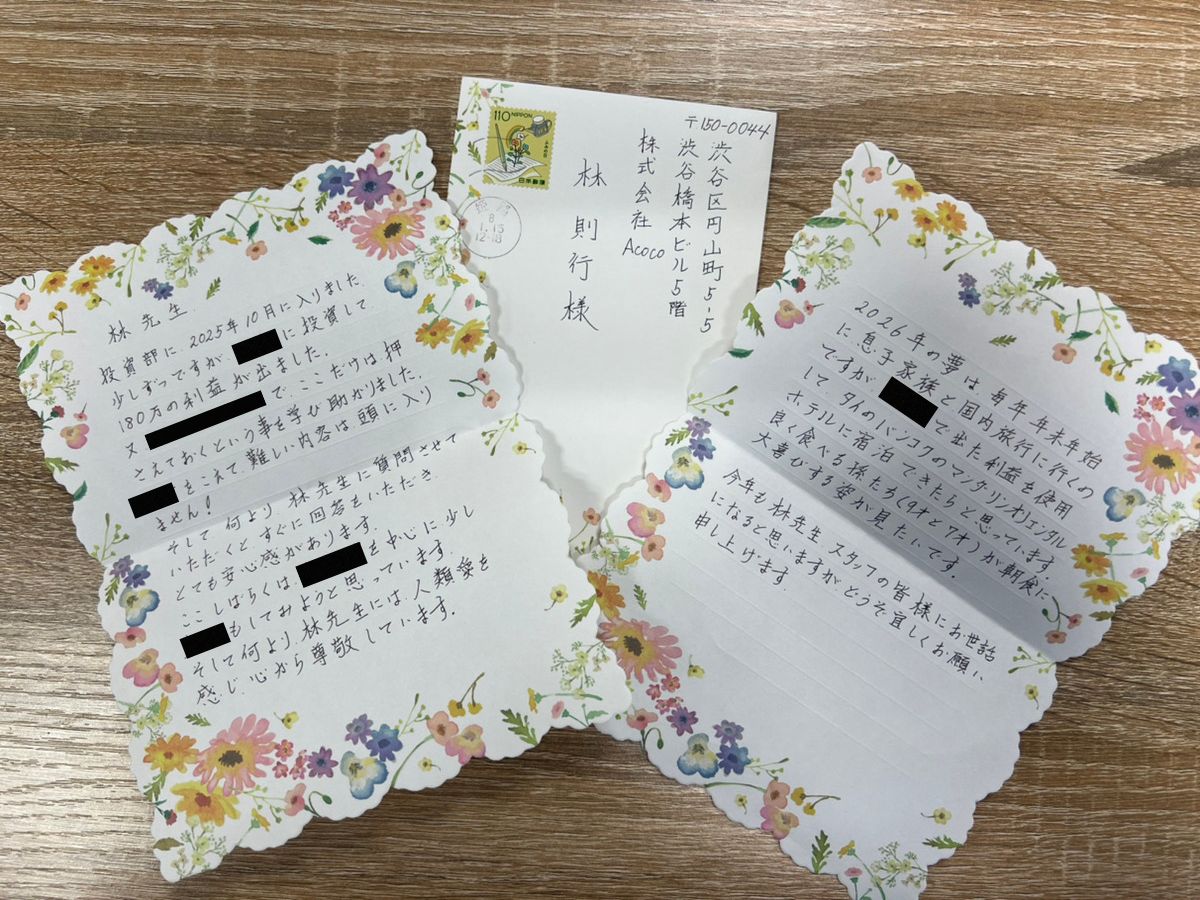 林先生.
投資部に、2025年10月に入りました.
少しずつですが、に投資して.
180万の利益が出ました.
又で、ここだけは押
さえておくという事を学び助かりました.
をこえて難しい内容は頭に入り
ません!
そして何より林先生に質問させて
いただくとすぐに回答をいただき.
とても安心感があります.
ここしばらくは、を中心に少し
もしてみようと思っています.
そして何より、林先生には、人類愛を
感じ心から尊敬しています.
110 NIPPON
ふみの日
日本郵便
8
1.15
12-18
〒150-0044
渋谷区円山町5-5
渋谷橋本ビル5階
株式会社Acoco
林則行様
2026年の夢は毎年年末年始
に息子家族と国内旅行に行くの
ですがで出た利益を使用
して、タイのバンコクのマンダリンオリエンタル
ホテルに宿泊できたらと思っています
良く食べる孫たち(9才と7才)が朝食に
大喜びする姿が見たいです.
今年も林先生スタッフの皆様にお世話
になると思いますが、どうぞ宜しくお願い
申し上げます.